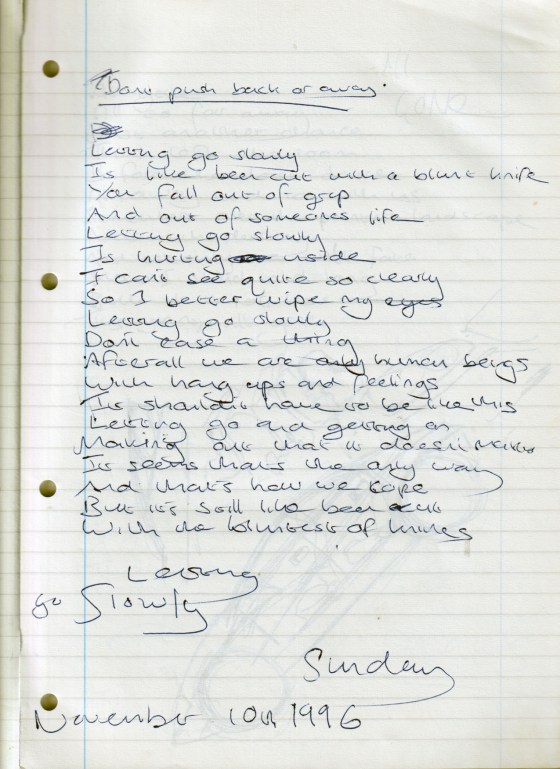 Dont push back or away.
Letting go slowly
Is like been cut with a blunt knife
You fall out of grip
And out of someones life
Letting go slowly
Is hurting inside
I can't see quite so clearly
So I better wipe my eyes
Letting go slowly
Don't ease a thing
Afterall we are only human beings
With hang ups and feelings
It shouldn't have to be like this
Letting go and getting on
Making out that it doesn't matter
It seems thats the only way
And that's how we cope
But it's still like been cut
With the bluntest of knives
Letting
go Slowly
Sunday
November 10th 1996